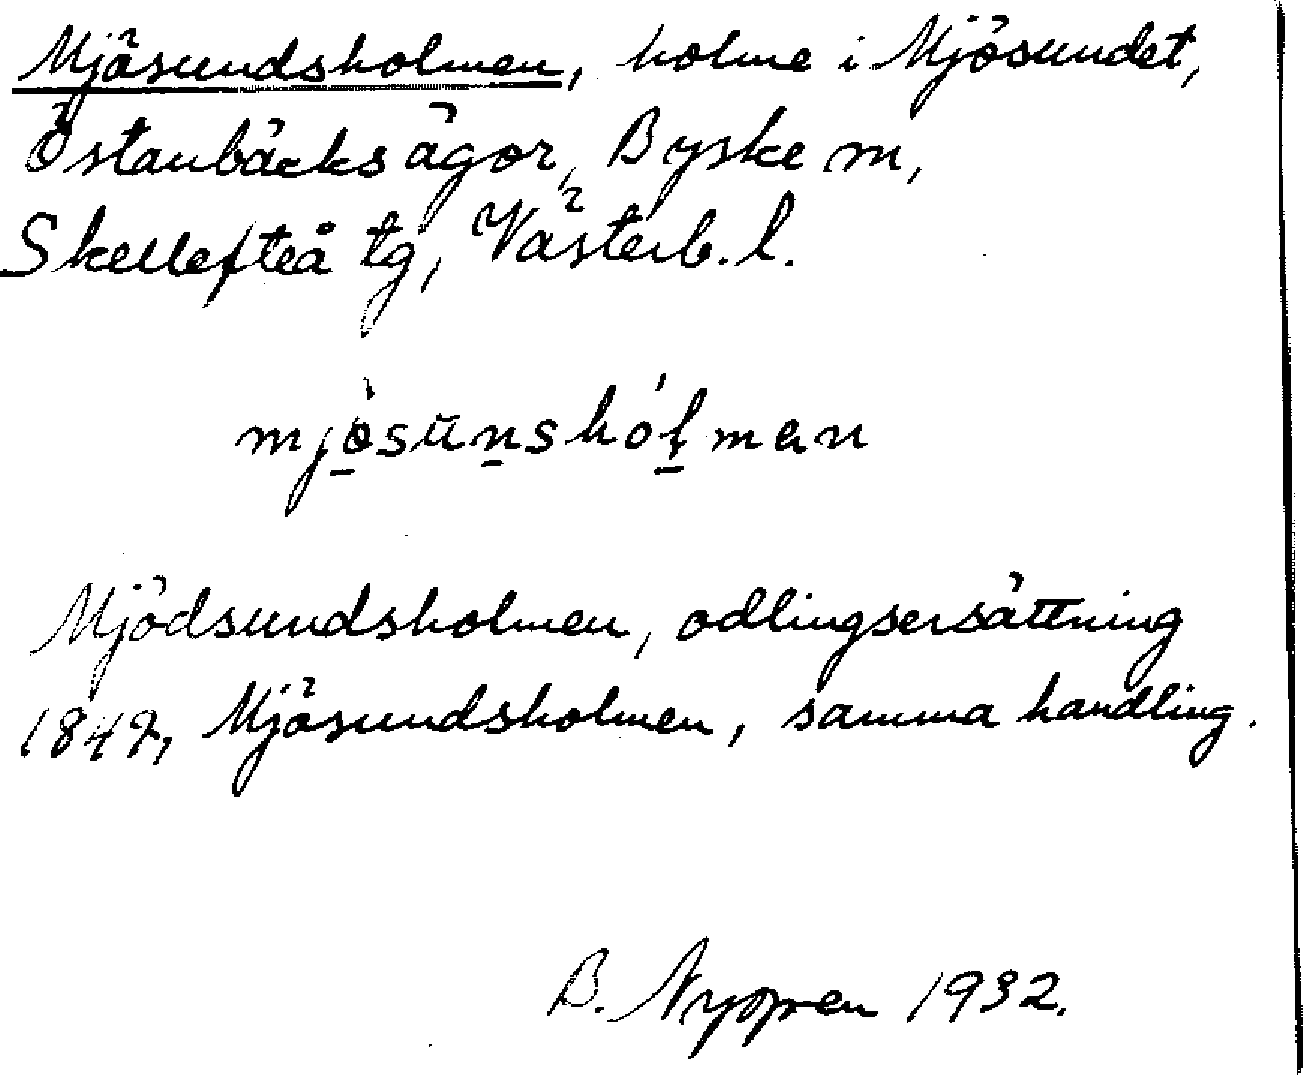 Mjösundsholmen, holme i Mjösundet,
Östanbäcks ägor, Byske sn,
Skellefteå tg, Västerb. l.
mjösunshólmen
Mjödsundsholmen, odlingsersättning
1842, Mjösundsholmen, samma handling.
B. 1932.